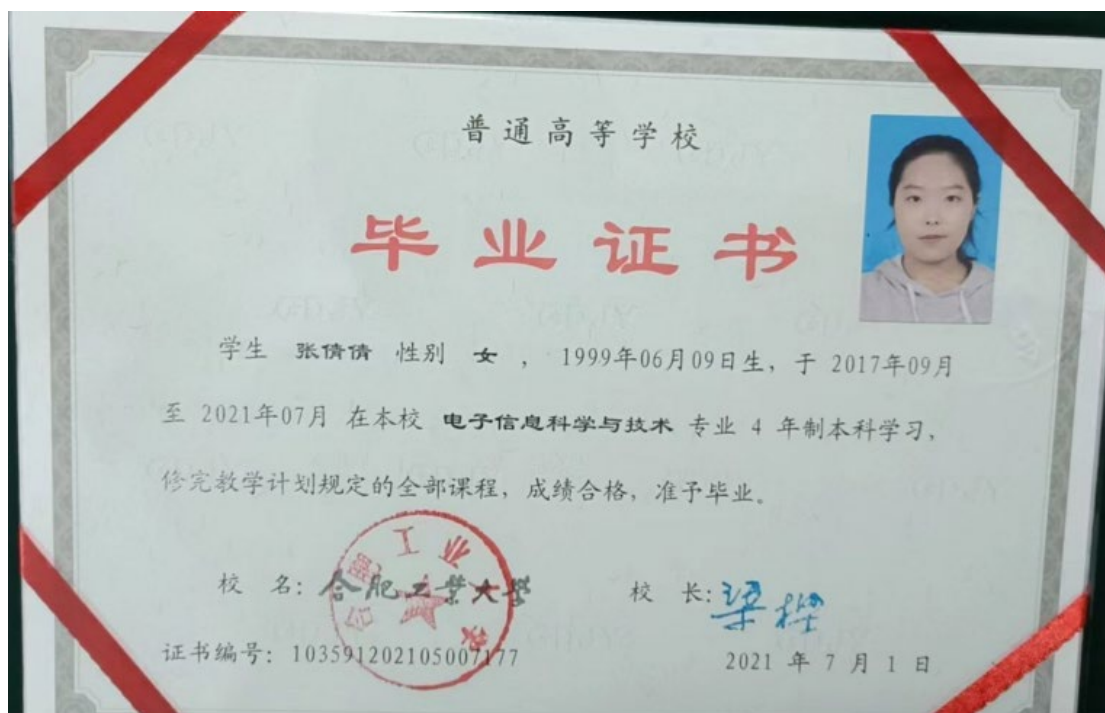 普通高等学校
毕业证书
学生 张倩倩 性别 女 , 1999年06月09日生, 于 2017年09月
至 2021年07月 在本校 电子信息科学与技术 专业 4 年制本科学习,
修完教学计划规定的全部课程, 成绩合格, 准予毕业。
校 名: 合肥工业大学 校 长: 梁樑
证书编号: 103591202105007177 2021 年 7 月 1 日